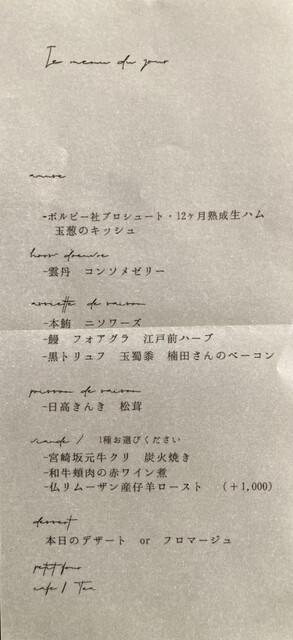 Le menu du jour
amuse
-ボルピー社プロシュート・12ヶ月熟成生ハム
玉葱のキッシュ
hors d'oeuvre
-雲丹　コンソメゼリー
assiette de saison
-本鮪　ニソワーズ
-鰻　フォアグラ　江戸前ハーブ
-黒トリュフ　玉蜀黍　楠田さんのベーコン
poisson de saison
-日高きんき　松茸
viande / 1種お選びください
-宮崎坂元牛クリ　炭火焼き
-和牛頬肉の赤ワイン煮
-仏リムーザン産仔羊ロースト　（+1,000）
dessert
本日のデザート　or　フロマージュ
petit four
cafe / Tea